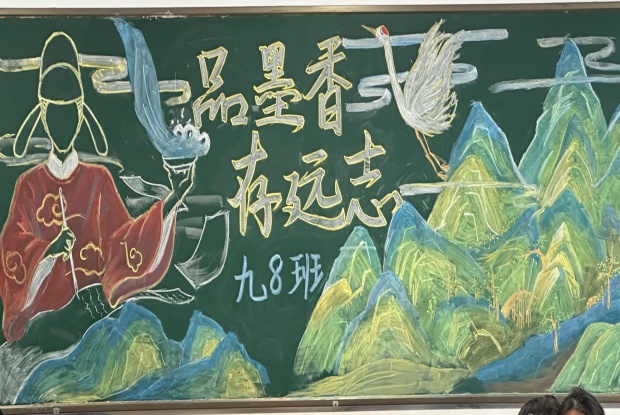 品墨香
存远志
九8班